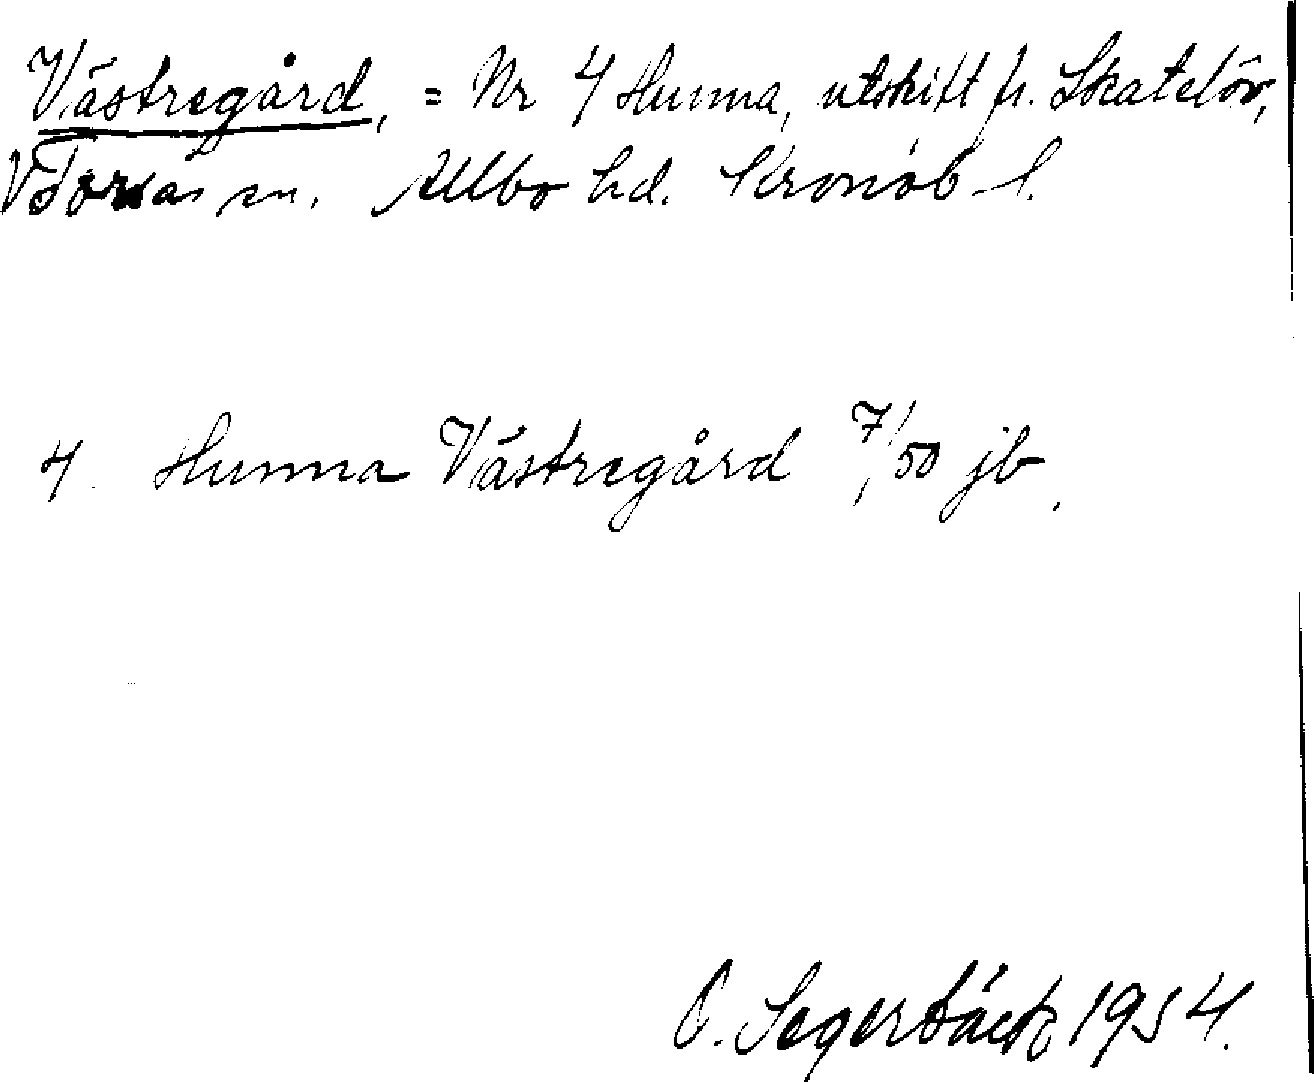 Västregård, = Nr 4 Hunna, utskift fr. Skatelöv,
V Torsås sn. Allbo hd. Kronob l.
4. Hunna Västregård 7/50 jb.
O. Segerbäck 1954.